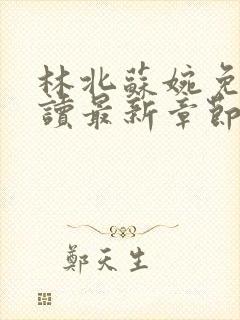 林北蘇婉免
讀最新章節
鄭天生